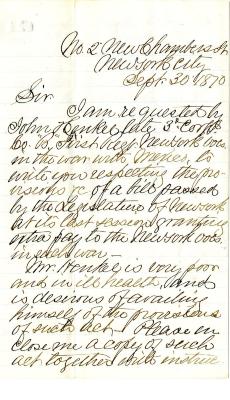 No. 2 New Chambers St
New York City
Sept. 30th 1870
Sir.
I am requested by
John Henkel late 3rd Corpl
Co. B, First Regt New York Vols.
in the war with Mexico, to
write you respecting the pro-
visions &c of a bill passed
by the Legislature of New York
at its last session granting
extra pay to the New York Vols.
in such war —
Mr. Henkel is very poor
and in ill health, and
is desirous of availing
himself of the provisions
of such act. Please en
close me a copy of such
act together with instruc